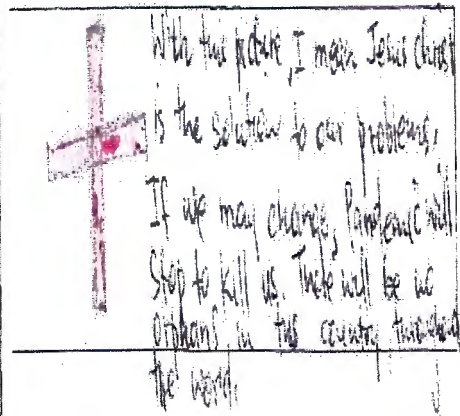 With this picture, I mean Jesus christ
is the solution to our problems.
If we may change, Pandemic will
Stop to kill us. There will be no
orphans in this country throughout
the world.